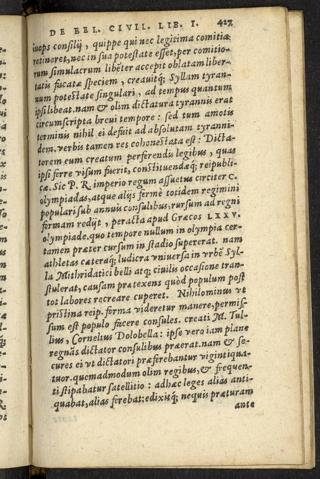 DE BEL. CIVIL. LIB. I. 427
iuops consilij, quippe qui nec legitima comitia
retineret, nec in sua potestate esset, per comitio-
rum simulacrum libēter accepit oblatam liber-
tatis fucatæ speciem, creauitq; Syllam tyran-
num potestate singulari, ad tempus quantum
ipsi libeat. nam & olim dictatura tyrannis erat
circumscripta breui tempore: sed tum amotis
terminis nihil ei defuit ad absolutam tyranni-
dem. verbis tamen res cohonestata est: Dicta-
torem eum creatum perferendis legibus, quas
ipsi ferre visum fuerit, constituendæq; reipubli-
cæ. Sic P. R. imperio regum assuetus circiter C.
olympiadas, atque alijs fermè totidem regimini
populari sub annuis consulibus, rursum ad regni
formam redijt, peracta apud Græcos LXXV.
olympiade. quo tempore nullum in olympia cer-
tamen præter cursum in stadio supererat. nam
athletas cæteraq; ludicra vniuersa in vrbē Syl-
la Mithridatici belli atq; ciuilis occasione tran-
stulerat, causam prætexens quòd populum post
tot labores recreare cuperet. Nihilominus vt
pristina reip. forma videretur manere, permis-
sum est populo facere consules. creati M. Tul-
lius, Cornelius Dolobella: ipse vero iam plane
regnās dictator consulibus præerat. nam & se-
cures ei vt dictatori præferebantur vigintiqua-
tuor. quemadmodum olim regibus, & frequen-
ti stipabatur satellitio: adhæc leges alias anti-
quabat, alias ferebat: edixitq; nequis præturam
ante